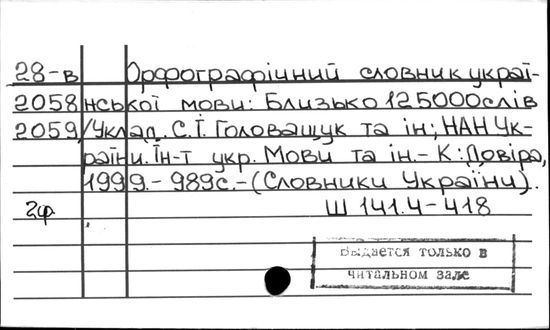 28-в Орфографічний словник украї-
2058 нської мови: Близько 125000слів
2059 /Уклад. С.І. Головащук та ін; НАН Ук-
раїни. Ін-т укр. Мови та ін.- К: Довіра,
1999.- 989с.-(Словники України).
2ф Ш 141.4-418
Выдается только в
читальном зале